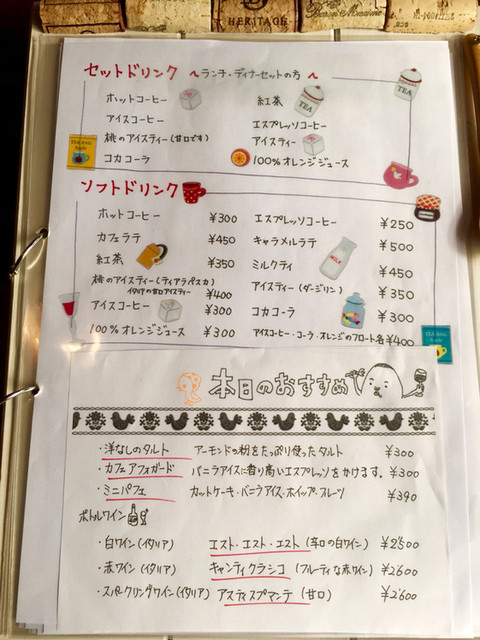 HERITAGE
セットドリンク 〜ランチ・ディナーセットの方〜
ホットコーヒー 紅茶
TEA
アイスコーヒー エスプレッソコーヒー
桃のアイスティー(甘口です) アイスティー
コカコーラ 100%オレンジジュース
ソフトドリンク
ホットコーヒー ¥300 エスプレッソコーヒー ¥250
カフェラテ ¥450 キャラメルラテ ¥500
紅茶 ¥350 ミルクティ ¥450
MILK
桃のアイスティー(ティアラパスカ)
イタリアの甘口アイスティー ¥400 アイスティー(ダージリン) ¥350
アイスコーヒー ¥300 コカコーラ ¥300
100%オレンジジュース ¥300 アイスコーヒー・コーラ・オレンジのフロート各¥400
本日のおすすめ
・洋なしのタルト アーモンドの粉をたっぷり使ったタルト ¥300
・カフェアフォガード バニラアイスに香り高いエスプレッソをかけます。 ¥300
・ミニパフェ カットケーキ・バニラアイス・ホイップ・フルーツ ¥390
ボトルワイン
・白ワイン(イタリア) エスト・エスト・エスト(辛口の白ワイン) ¥2500
・赤ワイン(イタリア) キャンティクラシコ(フルーティな赤ワイン) ¥2600
・スパークリングワイン(イタリア) アスティスプマンテ(甘口) ¥2600